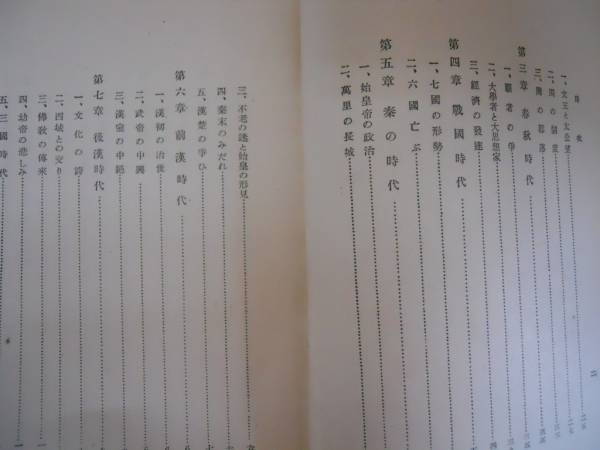 目次
一、文王と太公望
二、周の制度
三、周の都落
第三章 春秋時代
一、覇者の争
二、大學者と大思想家
三、經濟の發達
第四章 戰國時代
一、七國の形勢
二、六國亡ぶ
第五章 秦の時代
一、始皇帝の政治
二、萬里の長城
三、不老の謎と始皇の形見
四、秦末のみだれ
五、漢楚の爭ひ
第六章 前漢時代
一、漢初の治世
二、武帝の中興
三、漢室の中絕
第七章 後漢時代
一、文化の誇
二、西域との交り
三、佛敎の傳來
四、幼帝の悲しみ
五、三國時代